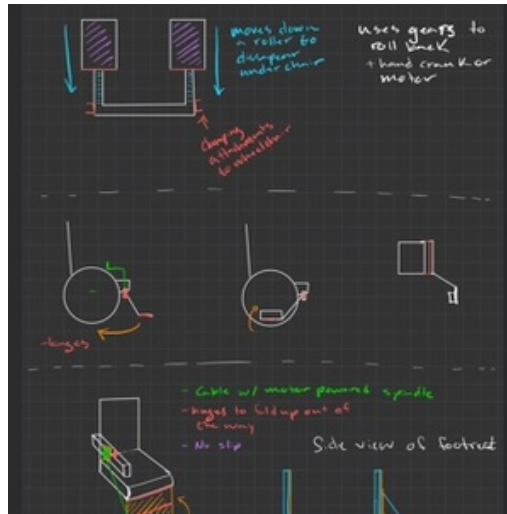 moves down
a roller to
dissapear
under chair
uses gears to
roll back
+ hand crank or
motor
clamping
attachments
to wheelchair
-hinges
- Cable w/ motor powered spindle
- hinges to fold up out of
the way
- No slip
Side view of footrest